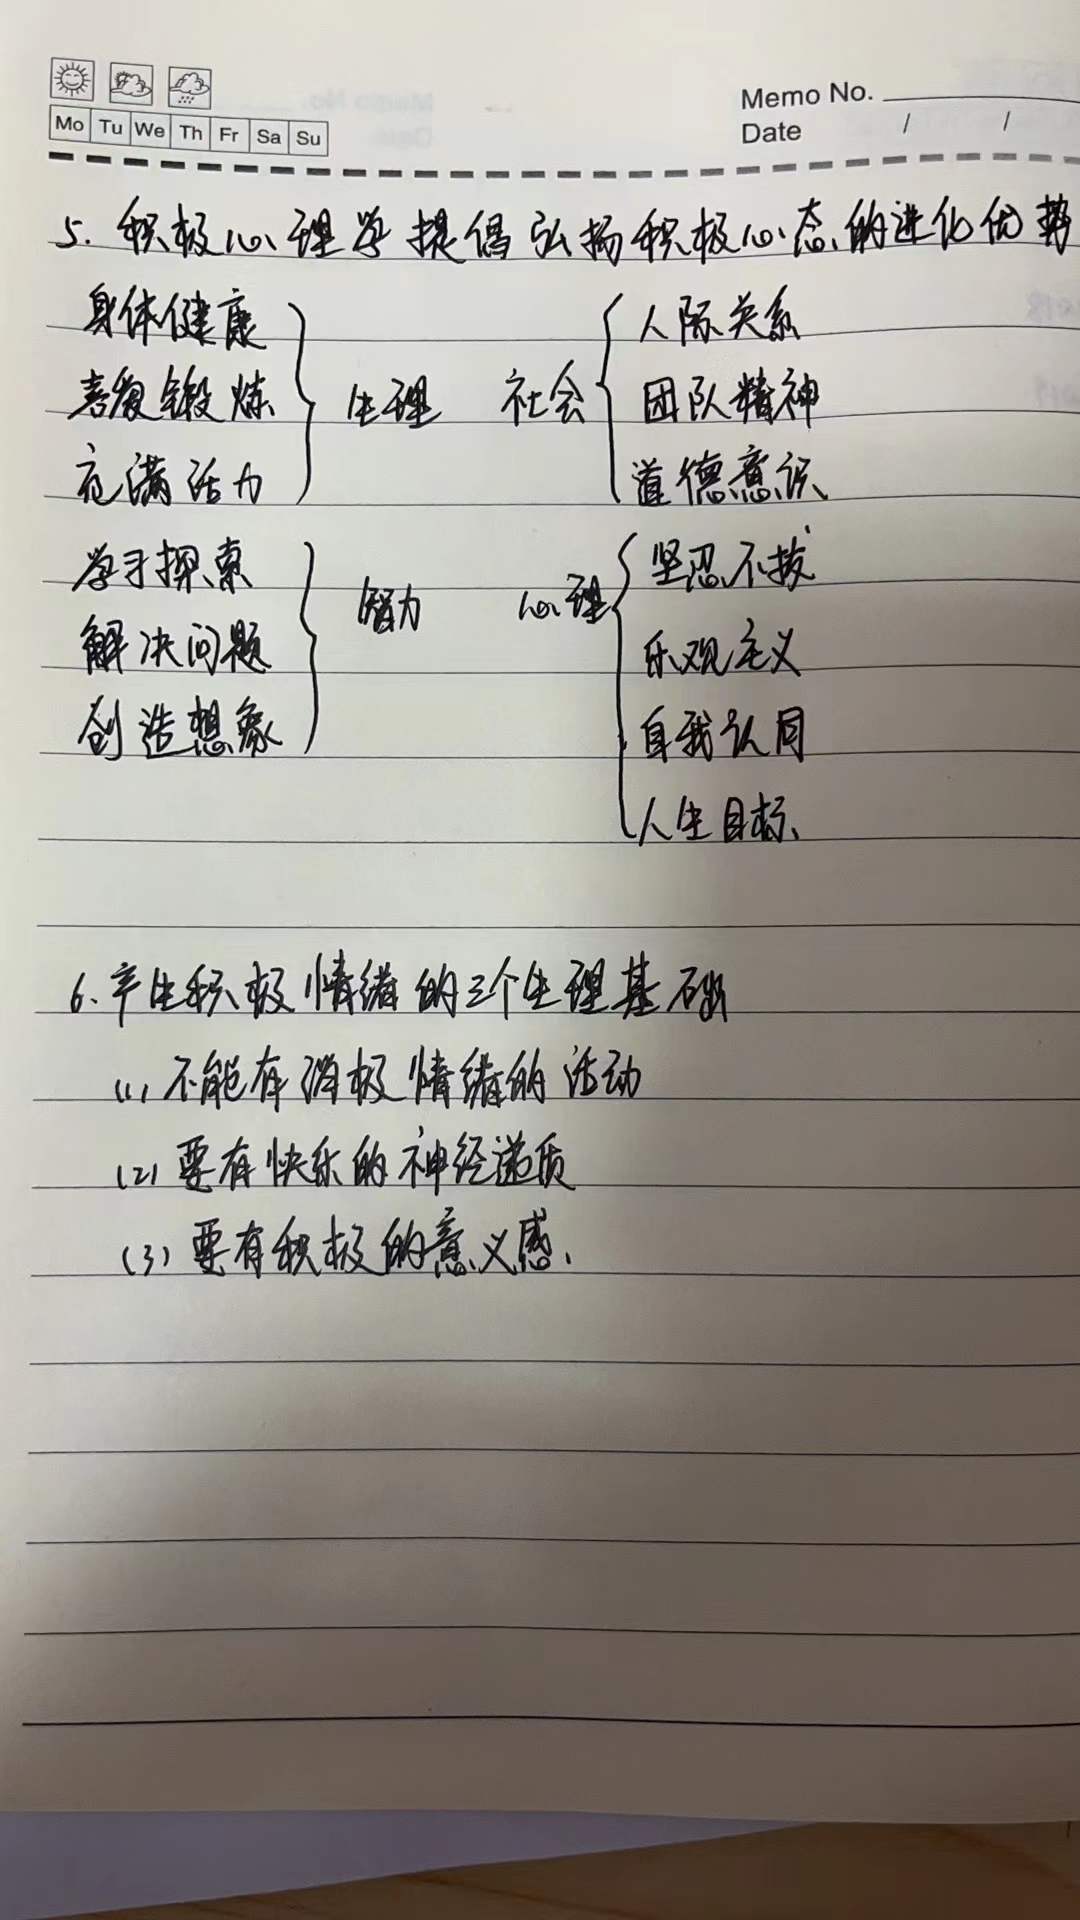 Mo Tu We Th Fr Sa Su
Memo No.
Date / /
5. 积极心理学提倡弘扬积极心态的进化优势
身体健康
喜爱锻炼
充满活力
生理
社会
人际关系
团队精神
道德意识
学习探索
解决问题
创造想象
智力
心理
坚忍不拔
乐观主义
自我认同
人生目标
6. 产生积极情绪的三个生理基础
(1) 不能有消极情绪的活动
(2) 要有快乐的神经递质
(3) 要有积极的意义感.